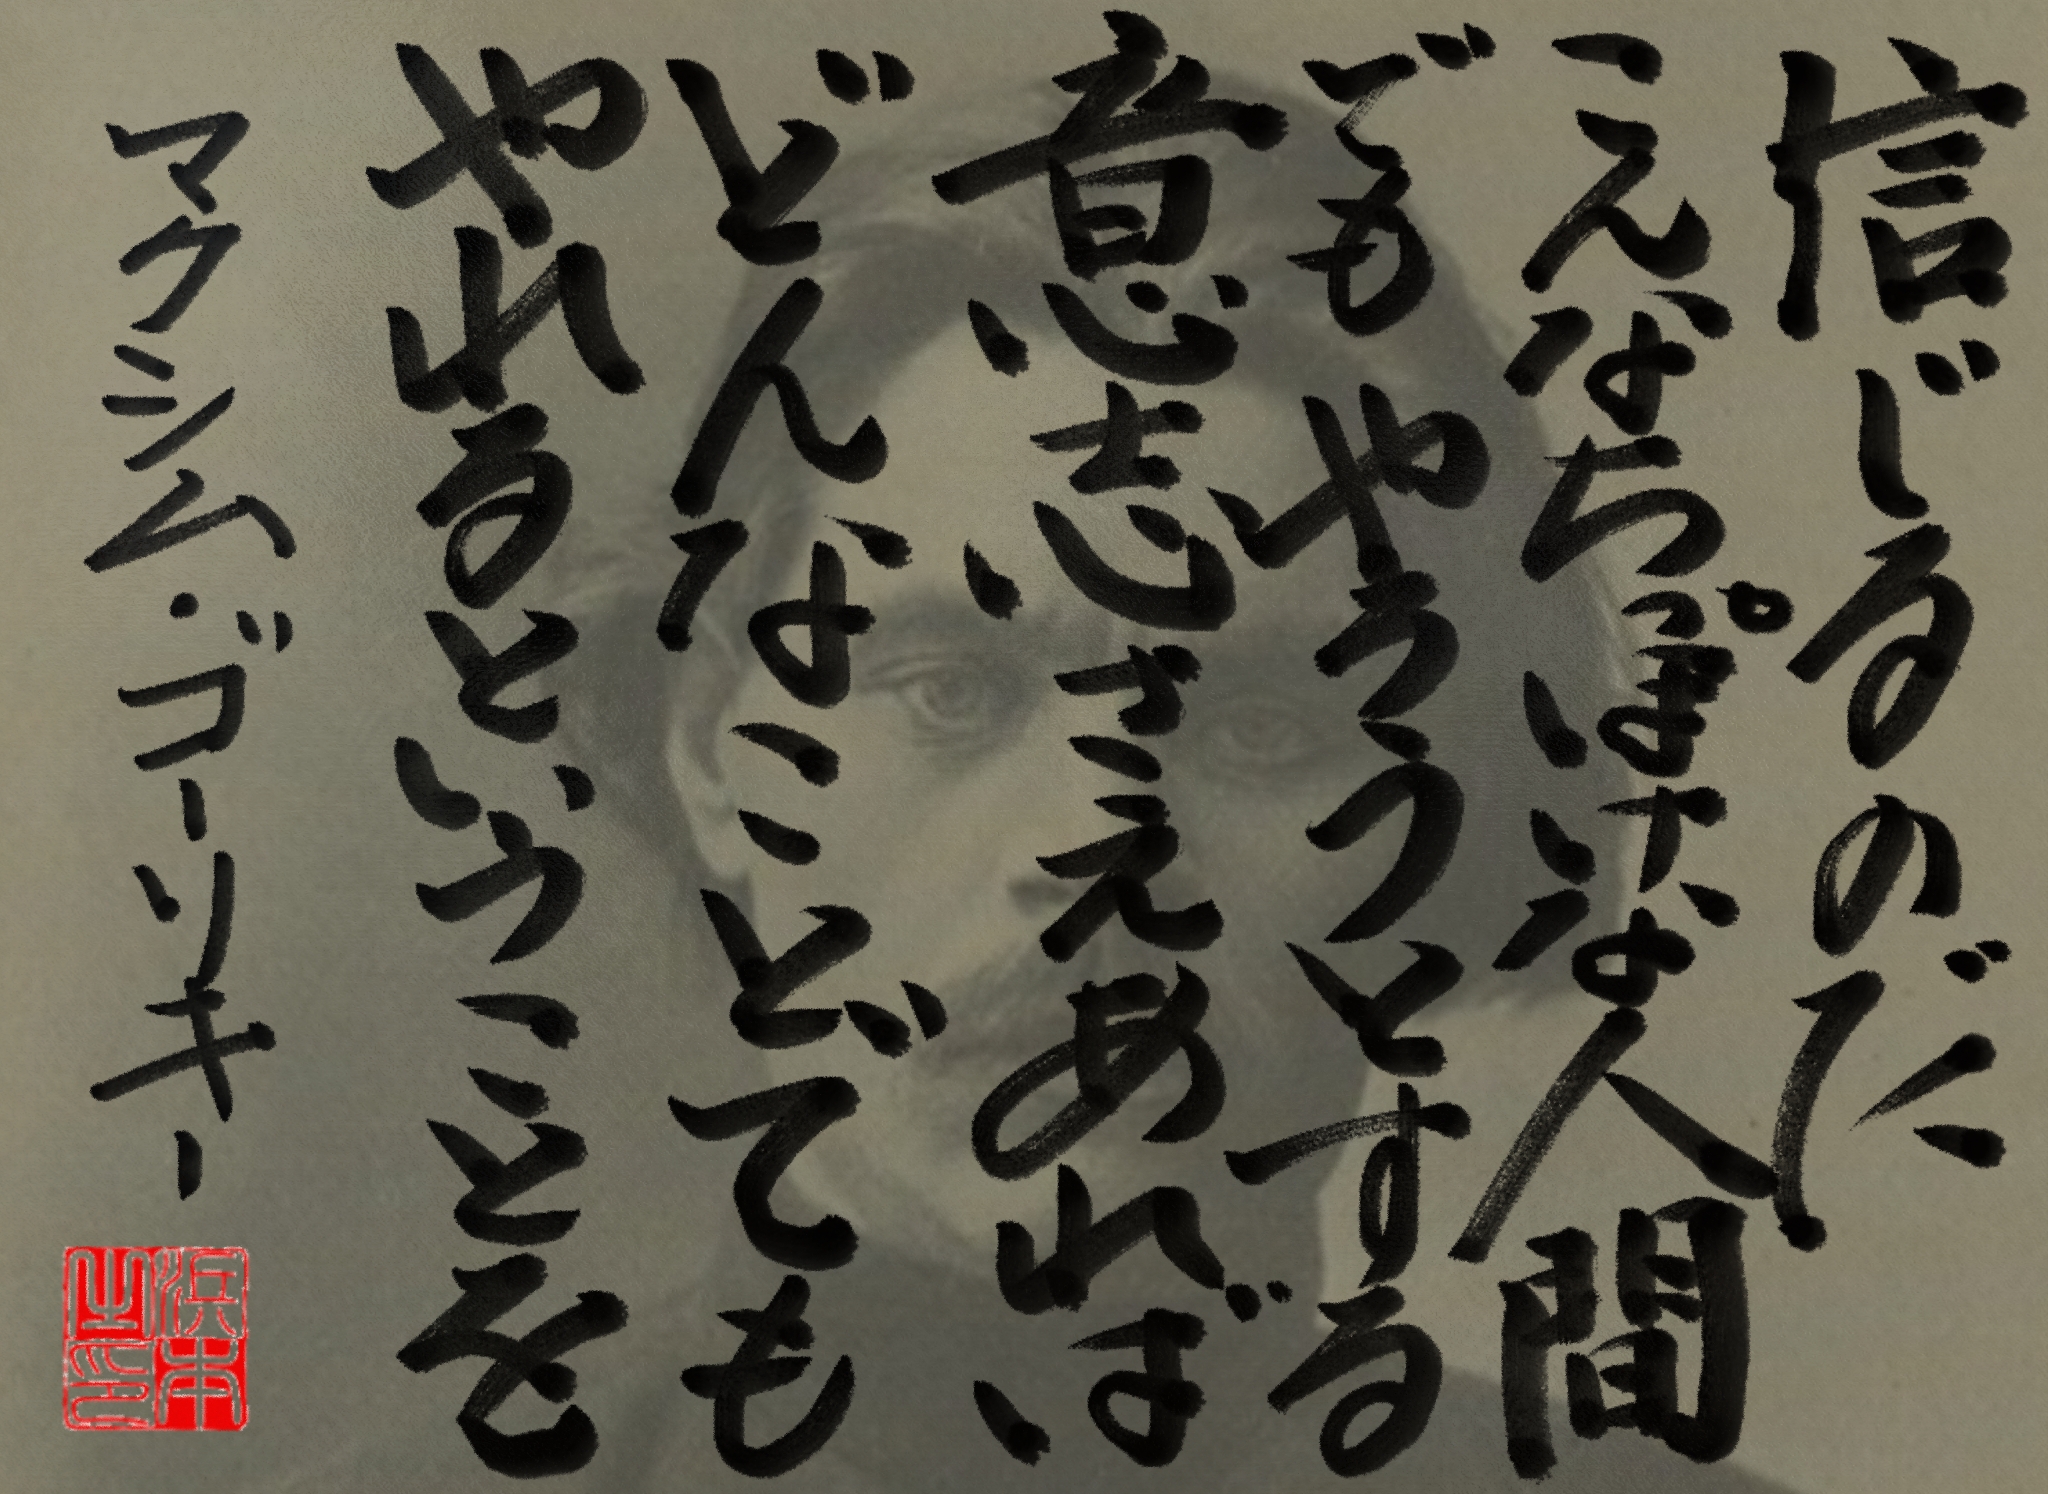 信じるのだ
こんなちっぽけな人間
でもやろうとする
意志さえあれば
どんなことでも
やれるということを
マクシム・ゴーリキー
浜本之印